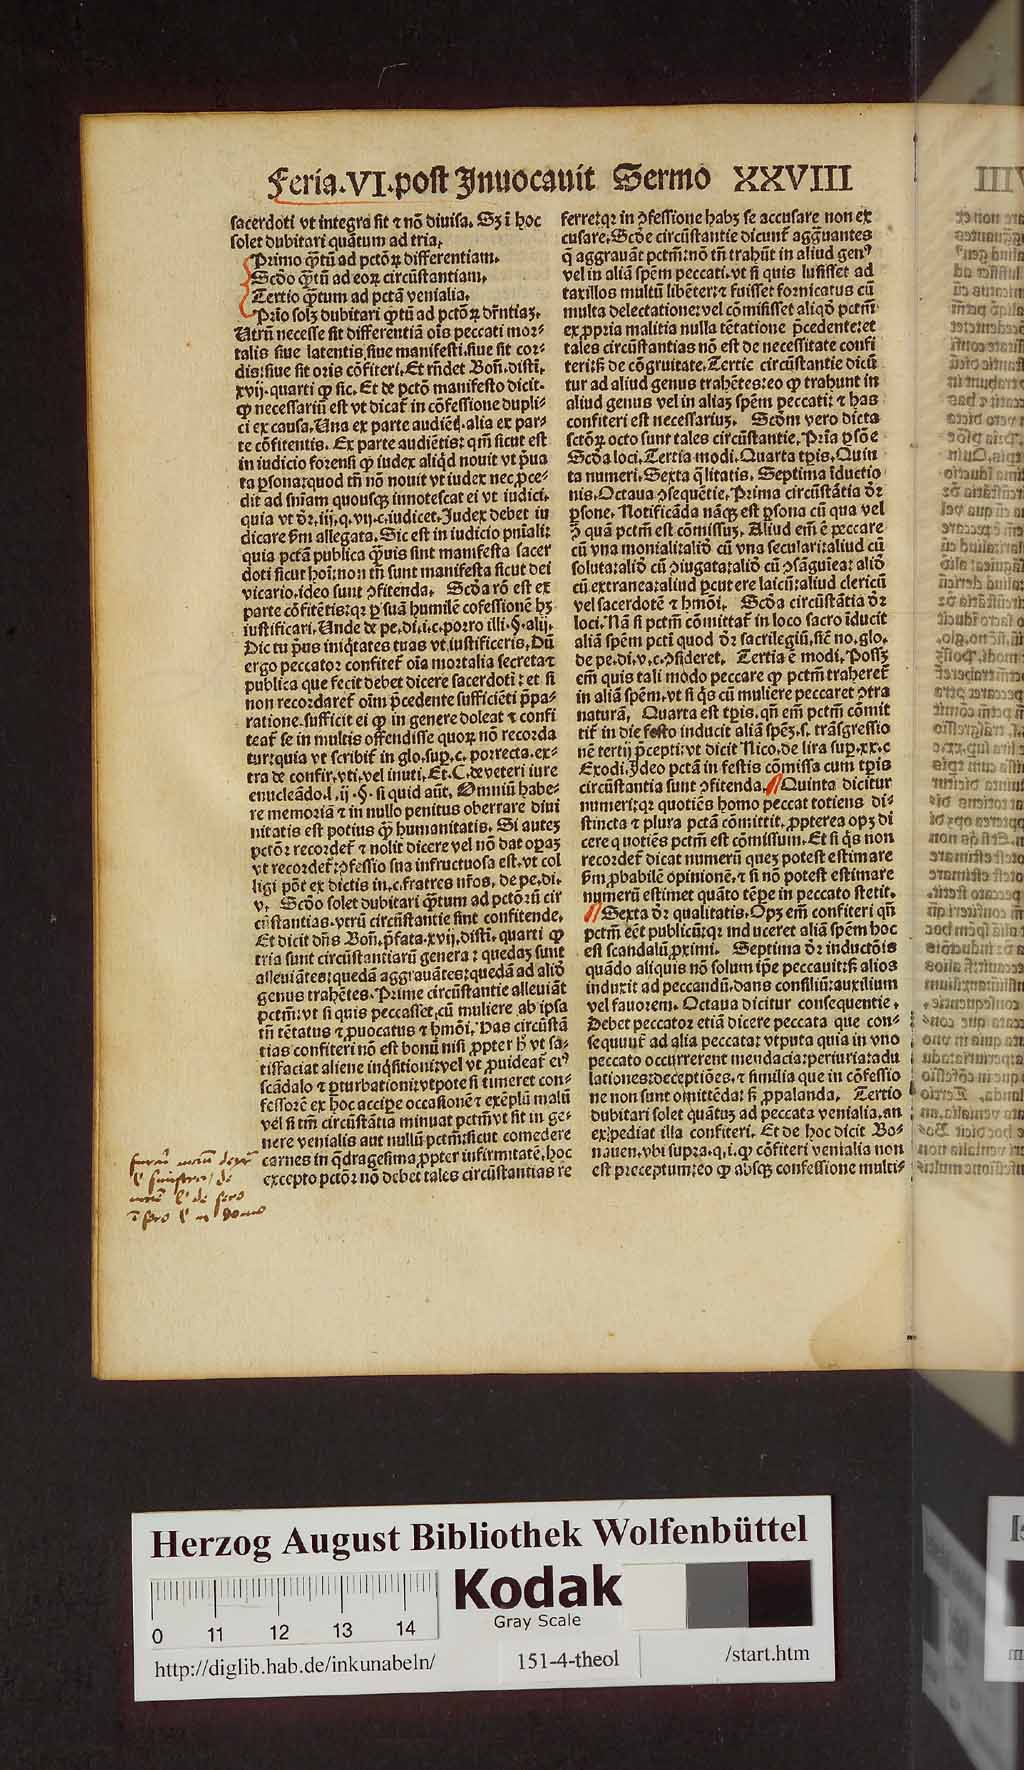 Feria.VI.post Inuocauit Sermo XXVIII
sacerdoti vt integra sit ⁊ nō diuisa. Sꝫ ī hoc
solet dubitari quātum ad tria.
Primo q̄tū ad pctōꝝ differentiam.
Scd̄o q̄tū ad eoꝝ circūstantiam.
Tertio q̄tum ad pctā venialia.
Prīo solꝫ dubitari q̄tū ad pctōꝝ dr̄ntiaꝫ.
Utrū necesse sit differentiā oīs peccati mor⸗
talis siue latentis siue manifesti.siue sit cor⸗
dis:siue sit oris cōfiteri. Et rn̄det Bon̄. distī.
xvij. quarti ꝙ sic. Et de pctō manifesto dicit.
ꝙ necessariū est vt dicat̄ in cōfessione dupli⸗
ci ex causa. Una ex parte audiēt̄. alia ex par⸗
te cōfitentis. Ex parte audiētis: qm̄ sicut est
in iudicio forensi ꝙ iudex aliqd̄ nouit vt p̄ua
ta ꝑsona:quod tn̄ nō nouit vt iudex nec ꝓce⸗
dit ad sn̄iam quousqꝫ innotescat ei vt iudici.
quia vt dr̄. iij. q. vij. c. iudicet. Iudex debet iu
dicare ẜm allegata. Sic est in iudicio pn̄iali:
quia pctā publica q̄uis sint manifesta sacer
doti sicut hoī: non tn̄ sunt manifesta sicut dei
vicario. ideo sunt ꝯfitenda. Scd̄a rō est ex
parte cōfitētis: qꝛ ꝑ suā humilē cōfessionē hꝫ
iustificari. Unde de pe. di. i. c. porro illi. §. alij.
Dic tu p̄us iniq̄tates tuas vt iustificeris. Dū
ergo peccator confitet̄ oīa mortalia secreta ⁊
publica que fecit debet dicere sacerdoti: et si
non recordaret̄ oīm p̄cedente sufficiēti p̄pa⸗
ratione. sufficit ei ꝙ in genere doleat ⁊ confi
teat̄ se in multis offendisse quoꝝ nō recorda
tur: quia vt scribit̄ in glo. sup. c. porrecta. ex⸗
tra de confir. vti. vel inuti. Et. C. de veteri iure
enucleādo. l. ij. §. si quid aūt. Omniū habe⸗
re memoriā ⁊ in nullo penitus oberrare diui
nitatis est potius q̄ꝫ humanitatis. Si auteꝫ
pctōr recordet̄ ⁊ nolit dicere vel nō dat opaꝫ
vt recordet̄: ꝯfessio sua infructuosa est. vt col
ligi pōt ex dictis in. c. fratres nr̄os. de pe. di.
v. Scd̄o solet dubitari q̄tum ad pctōrū cir
cūstantias. vtrū circūstantie sint confitende.
Et dicit dn̄s Bon̄. p̄fata. xvij. distī. quarti ꝙ
tria sunt circūstantiarū genera: quedaꝫ sunt
alleuiātes: quedā aggrauātes: quedā ad aliō
genus trahētes. Prime circūstantie alleuiāt
pctm̄: vt si quis peccasset cū muliere ab ipsa
tn̄ tētatus ⁊ ꝓuocatus ⁊ hmōi. Has circūstā
tias confiteri nō est bonū nisi ꝓpter hꝰ vt sa⸗
tisfaciat aliene inq̄sitioni: vel vt ꝓuideat̄ eiꝰ
scādalo ⁊ ꝑturbationi: vtpote si timeret con⸗
fessorē ex hoc accipe occasionē ⁊ exēplū malū
vel si tm̄ circūstātia minuat pctm̄ vt sit in ge⸗
nere venialis aut nullū pctm̄: sicut comedere
carnes in q̄dragesima ꝓpter infirmitatē. hoc
excepto pctōr nō debet tales circūstantias re
ferre: qꝛ in ꝯfessione habꝫ se accusare non ex
cusare. Scd̄e circūstantie dicunt̄ aggrauantes
q̄ aggrauāt pctm̄: nō tn̄ trahūt in aliud genꝰ
vel in aliā spēm peccati. vt si quis lusisset ad
taxillos multū libēter: ⁊ fuisset fornicatus cū
multa delectatione: vel cōmisisset aliqd̄ pctm̄
ex ꝓpria malitia nulla tētatione p̄cedente: et
tales circūstantias nō est de necessitate confi
teri: sꝫ de cōgruitate. Tertie circūstantie dicū
tur ad aliud genus trahētes: eo ꝙ trahunt in
aliud genus vel in aliaꝫ spēm peccati: ⁊ has
confiteri est necessariuꝫ. Scd̄m vero dicta
sctōꝝ octo sunt tales circūstantie. Prīa ꝑsōe
Scd̄a loci. Tertia modi. Quarta tꝑis. Quin
ta numeri. Sexta q̄litatis. Septima īductio
nis. Octaua ꝯsequētie. Prima circūstātia dr̄
ꝑsone. Notificāda nāqꝫ est ꝑsona cū qua vel
ꝯ̄ quā pctm̄ est cōmissuꝫ. Aliud em̄ ē peccare
cū vna moniali: aliō cū vna seculari: aliud cū
soluta: aliō cū ꝯiugata: aliō cū ꝯsāguīea: aliō
cū extranea: aliud ꝑcutere laicū: aliud clericū
vel sacerdotē ⁊ hmōi. Scd̄a circūstātia dr̄
loci. Nā si pctm̄ cōmittat̄ in loco sacro īducit
aliā spēm pcti quod dr̄ sacrilegiū. sic̄ no. glo.
de pe. di. v. c. ꝯsideret. Tertia ē modi. Possꝫ
em̄ quis tali modo peccare ꝙ pctm̄ traheret̄
in aliā spēm. vt si q̄s cū muliere peccaret ꝯtra
naturā. Quarta est tꝑis. qn̄ em̄ pctm̄ cōmit
tit̄ in die festo inducit aliā spēꝫ. s. trāsgressio
nē tertij p̄cepti: vt dicit Nico. de lira sup. xx. c
Exodi. Ideo pctā in festis cōmissa cum tꝑis
circūstantia sunt ꝯfitenda. ¶ Quinta dicitur
numeri: qꝛ quotiēs homo peccat totiens di⸗
stincta ⁊ plura pctā cōmittit. ꝓpterea opꝫ di
cere quotiēs pctm̄ est cōmissum. Et si q̄s non
recordet̄ dicat numerū queꝫ potest estimare
ẜm ꝓbabilē opinionē. ⁊ si nō potest estimare
numerū estimet quāto tēpe in peccato stetit.
¶ Sexta dr̄ qualitatis. Opꝫ em̄ confiteri qn̄
pctm̄ eēt publicū: qꝛ induceret aliā spēm hoc
est scandalū ꝓximi. Septima dr̄ inductōis
quādo aliquis nō solum ip̄e peccauit: sꝫ alios
induxit ad peccandū. dans consiliū: auxilium
vel fauorem. Octaua dicitur consequentie.
Debet peccator etiā dicere peccata que con⸗
sequunt̄ ad alia peccata: vtputa quia in vno
peccato occurrerent mendacia: periuria: adu
lationes: deceptiōes. ⁊ similia que in cōfessio
ne non sunt omittēda: sꝫ ꝓpalanda. Tertio
dubitari solet quātuꝫ ad peccata venialia. an
expediat illa confiteri. Et de hoc dicit Bo⸗
nauen. vbi supra. q. i. ꝙ cōfiteri venialia non
est preceptum: eo ꝙ absqꝫ confessione multi⸗
Herzog August Bibliothek Wolfenbüttel
Kodak
Gray Scale
0 11 12 13 14
http://diglib.hab.de/inkunabeln/ 151-4-theol /start.htm